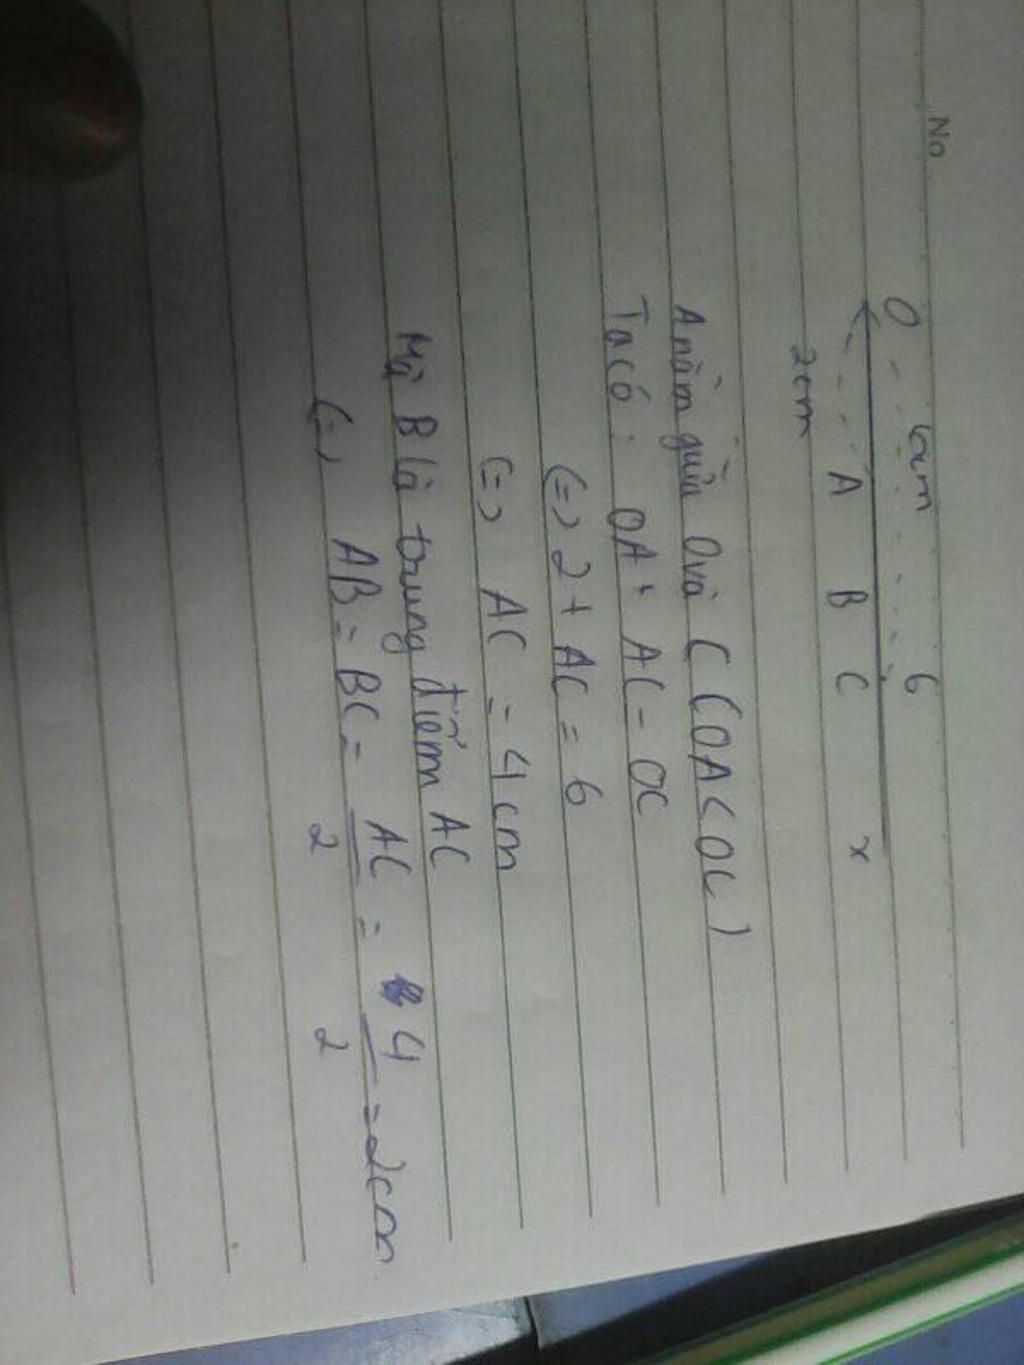 No
O 6cm 6
A B C x
2cm
A nằm giữa O và C (OA<OC)
Ta có : OA + AC = OC
(=) 2 + AC = 6
(=) AC = 4cm
Mà B là trung điểm AC
(=) AB = BC = AC/2 = 4/2 = 2cm